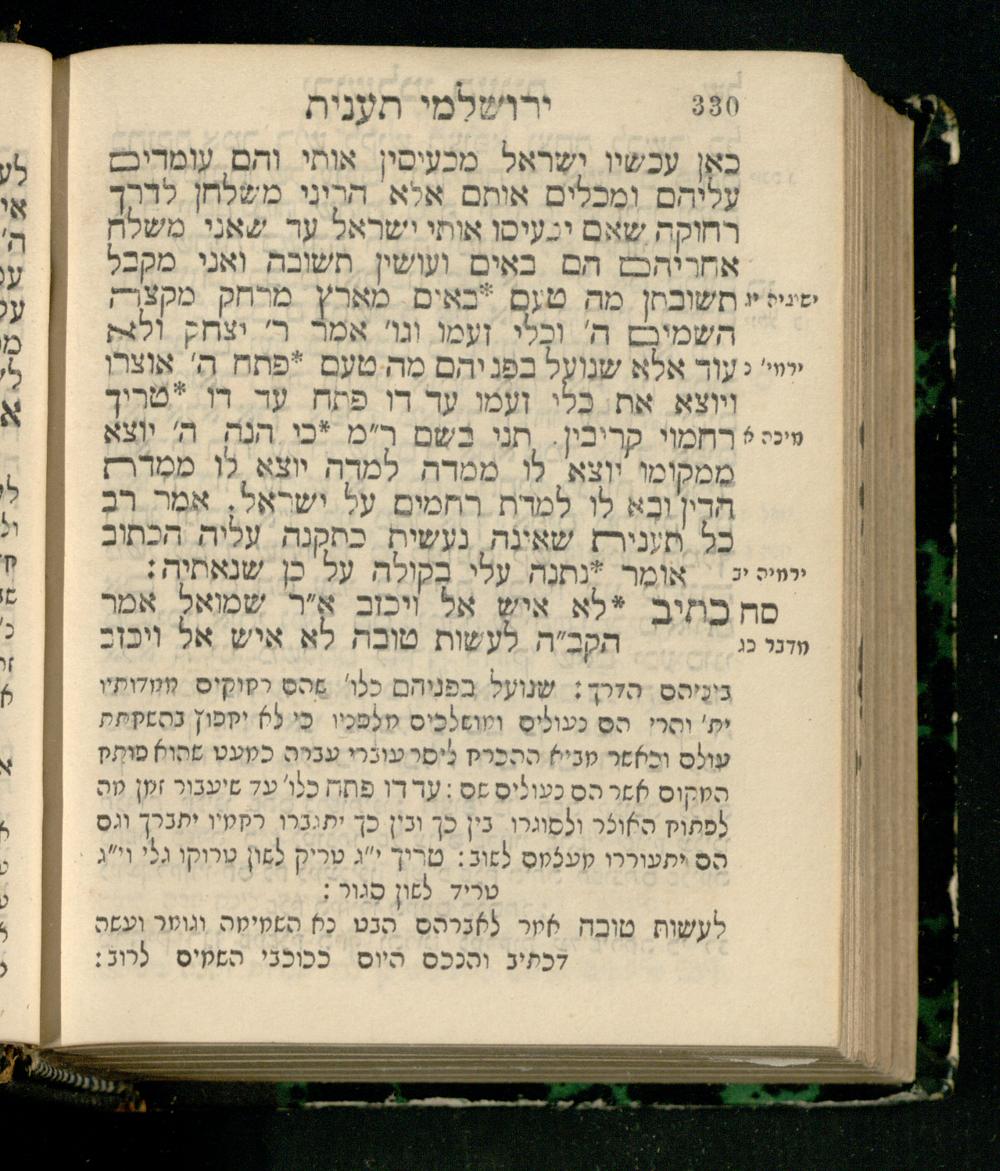 330 ירושלמי תענית
כאן עכשיו ישראל מכעיסין אותי והם עומדים
עליהם ומכלים אותם אלא הריני משלחן לדרך
רחוקה שאם יכעיסו אותי ישראל עד שאני משלח
אחריהם הם באים ועושין תשובה ואני מקבל
ישעיה יג תשובתן מה טעם *באים מארץ מרחק מקצה
השמים ה' וכלי זעמו וגו' אמר ר' יצחק ולא
ירמי' נ עוד אלא שנועל בפניהם מה טעם *פתח ה' אוצרו
ויוצא את כלי זעמו עד דו פתח עד דו *טריך
מיכה א רחמוי קריבין. תני בשם ר"מ *כי הנה ה' יוצא
ממקומו יוצא לו ממדה למדה יוצא לו ממדת
הדין ובא לו למדת רחמים על ישראל. אמר רב
כל תענית שאינה נעשית כתקנה עליה הכתוב
ירמיה יב אומר *נתנה עלי בקולה על כן שנאתיה:
סח כתיב *לא איש אל ויכזב א"ר שמואל אמר
מדבר כג הקב"ה לעשות טובה לא איש אל ויכזב
ביניהם הדרך: שנועל בפניהם כלו' שהם רחוקים ממדותיו
ית' והרי הם נעולים ומושלכים מלפניו כי לא יחפוץ בהשחתת
עולם וכאשר מביא ההכרח ליסר עוברי עבירה כמעט שהוא פותח
המקום אשר הם נעולים שם: עד דו פתח כלו' עד שיעבור זמן מה
לפתוח האוצר ולסוגרו בין כך ובין כך יתגברו רחמיו יתברך וגם
הם יתעוררו מעצמם לשוב: טריך י"ג טריק לשון טרוקו גלי וי"ג
טריד לשון סגור:
לעשות טובה אמר לאברהם הבט נא השמימה וגומר ועשה
דכתיב והנכם היום ככוכבי השמים לרוב: